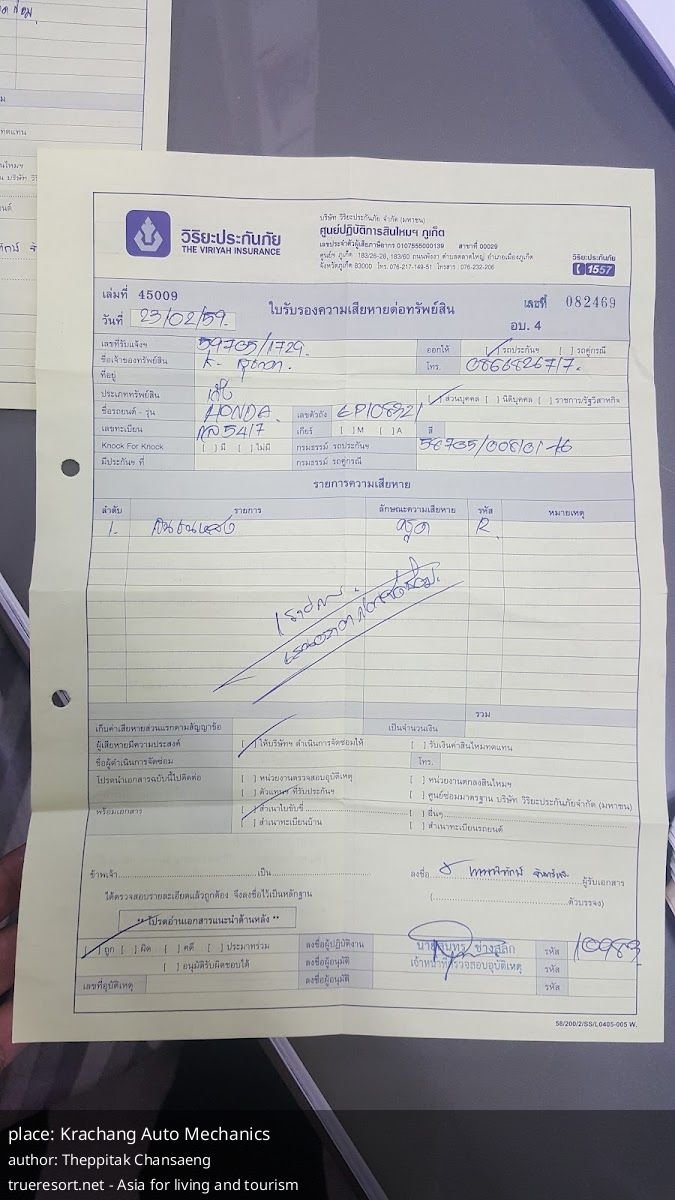 วิริยะประกันภัย
THE VIRIYAH INSURANCE
บริษัท วิริยะประกันภัย จำกัด (มหาชน)
ศูนย์ปฏิบัติการสินไหมฯ ภูเก็ต
เลขประจำตัวผู้เสียภาษีอากร 0107555000139 สาขาที่ 00029
ศูนย์ฯ ภูเก็ต 183/26-28, 183/60 ถนนพังงา ตำบลตลาดใหญ่ อำเภอเมืองภูเก็ต
จังหวัดภูเก็ต 83000 โทร. 076-217-149-51 โทรสาร : 076-232-206
วิริยะประกันภัย
1557
เล่มที่ 45009
ใบรับรองความเสียหายต่อทรัพย์สิน
เลขที่ 082469
วันที่ 23/02/59.
อบ. 4
เลขที่รับแจ้งฯ 59705/1729.
ออกให้ [ ] รถประกันฯ [ ] รถคู่กรณี
ชื่อเจ้าของทรัพย์สิน K.
โทร.
ที่อยู่
ประเภททรัพย์สิน เก๋ง
[ ] ส่วนบุคคล [ ] นิติบุคคล [ ] ราชการ/รัฐวิสาหกิจ
ชื่อรถยนต์ - รุ่น HONDA. เลขตัวถัง EP108321
เลขทะเบียน 5417 เกียร์ [ ] M [ ] A สี
Knock For Knock [ ] มี [ ] ไม่มี กรมธรรม์ รถประกันฯ
มีประกันฯ ที่ กรมธรรม์ รถคู่กรณี
รายการความเสียหาย
ลำดับ รายการ ลักษณะความเสียหาย รหัส หมายเหตุ
1. กันชนหลัง ครูด R
รวม
เก็บค่าเสียหายส่วนแรกตามสัญญาข้อ เป็นจำนวนเงิน
ผู้เสียหายมีความประสงค์ [ ] ให้บริษัทฯ ดำเนินการจัดซ่อมให้ [ ] รับเงินค่าสินไหมทดแทน
ชื่อผู้ดำเนินการจัดซ่อม โทร.
โปรดนำเอกสารฉบับนี้ไปติดต่อ [ ] หน่วยงานตรวจสอบอุบัติเหตุ [ ] หน่วยงานตกลงสินไหมฯ
[ ] ตัวแทนฯ ที่รับประกันฯ [ ] ศูนย์ซ่อมมาตรฐาน บริษัท วิริยะประกันภัยจำกัด (มหาชน)
พร้อมเอกสาร [ ] สำเนาใบขับขี่ [ ] อื่นๆ
[ ] สำเนาทะเบียนบ้าน [ ] สำเนาทะเบียนรถยนต์
ข้าพเจ้า เป็น ลงชื่อ ผู้รับเอกสาร
ได้ตรวจสอบรายละเอียดแล้วถูกต้อง จึงลงชื่อไว้เป็นหลักฐาน ( ตัวบรรจง)
** โปรดอ่านเอกสารแนะนำด้านหลัง **
[ ] ถูก [ ] ผิด [ ] คดี [ ] ประมาทร่วม ลงชื่อผู้ปฏิบัติงาน ช่างสลิก รหัส 10983
[ ] อนุมัติรับผิดชอบได้ ลงชื่อผู้อนุมัติ เจ้าหน้าที่ตรวจสอบอุบัติเหตุ รหัส
เลขที่อุบัติเหตุ ลงชื่อผู้อนุมัติ รหัส
58/200/2/SS/L0405-005 W.
place: Krachang Auto Mechanics
author: Theppitak Chansaeng
trueresort.net - Asia for living and tourism